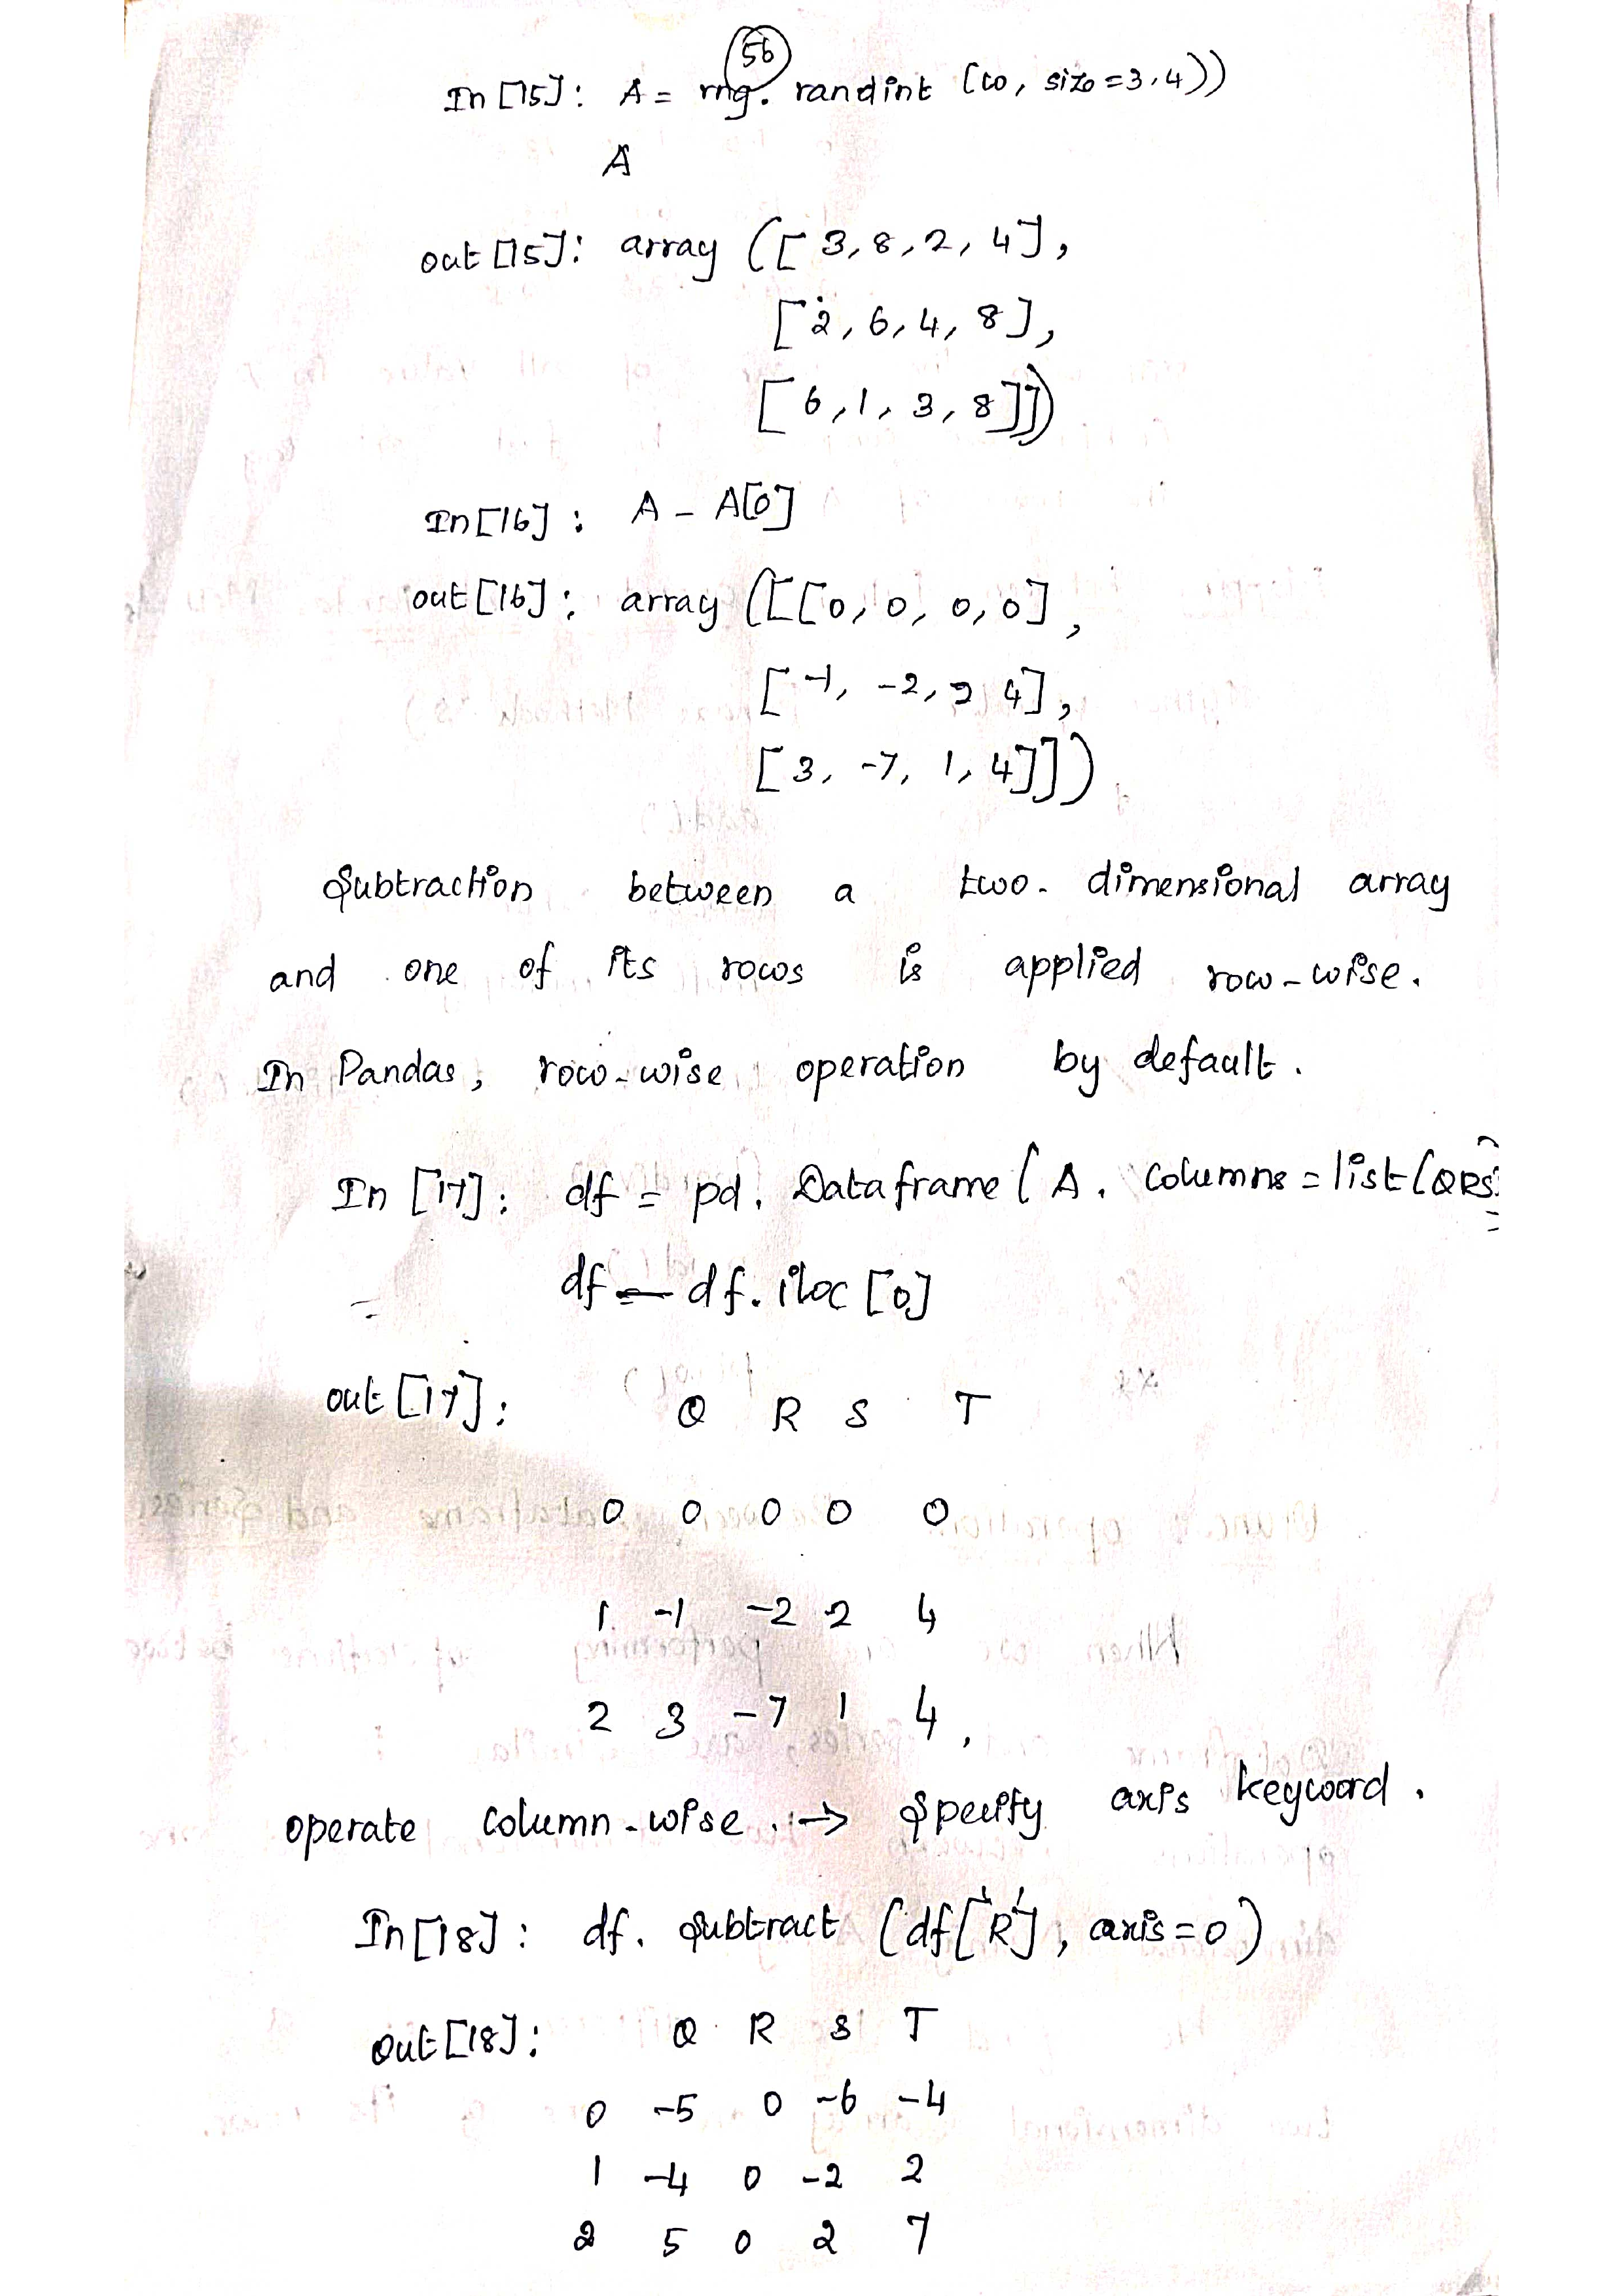 56
In [15]: A = rng. randint (10, size =3,4))
A
out [15]: array ([ 3,8,2,4],
[2,6,4,8],
[6,1,3,8]])
In [16] : A - A[0]
out [16] : array ([[0,0,0,0],
[-1, -2,2 4],
[3, -7, 1, 4]]])
Subtraction between a two- dimensional array
and one of its rows is applied row-wise.
In Pandas, row-wise operation by default.
In [17]: df = pd. Dataframe ( A, columns = list (QRS
df - df. iloc [0]
out [17]: Q R S T
0 0 0 0 0
1 -1 -2 2 4
2 3 -7 1 4,
operate column-wise. → specify axis keyword.
In [18] : df. subtract (df['R'], axis=0)
out [18]: Q R S T
0 -5 0 -6 -4
1 -4 0 -2 2
2 5 0 2 7